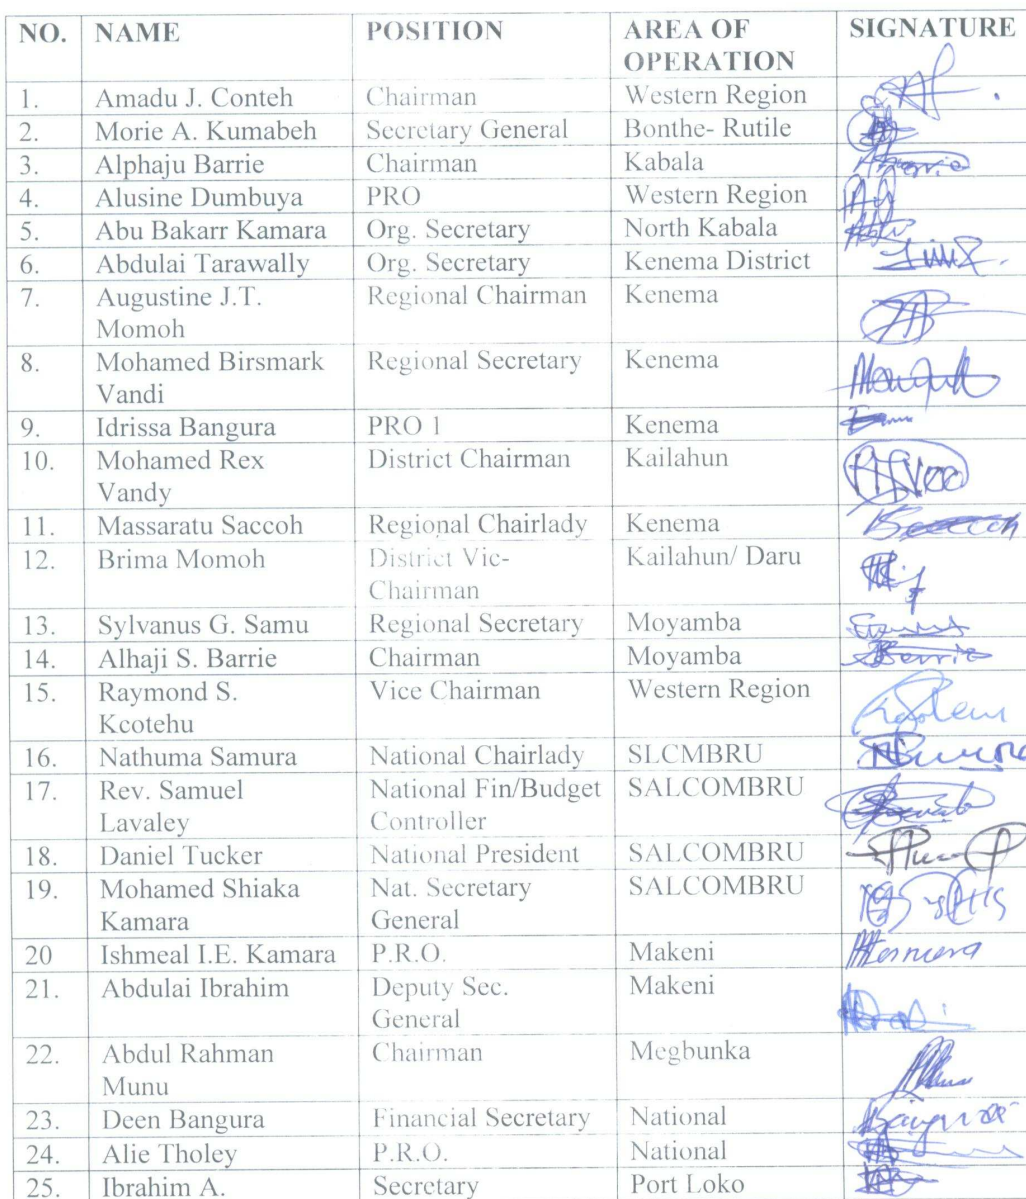 NO. NAME POSITION AREA OF OPERATION SIGNATURE
1. Amadu J. Conteh Chairman Western Region
2. Morie A. Kumabeh Secretary General Bonthe- Rutile
3. Alphaju Barrie Chairman Kabala
4. Alusine Dumbuya PRO Western Region
5. Abu Bakarr Kamara Org. Secretary North Kabala
6. Abdulai Tarawally Org. Secretary Kenema District
7. Augustine J.T. Momoh Regional Chairman Kenema
8. Mohamed Birsmark Vandi Regional Secretary Kenema
9. Idrissa Bangura PRO 1 Kenema
10. Mohamed Rex Vandy District Chairman Kailahun
11. Massaratu Saccoh Regional Chairlady Kenema
12. Brima Momoh District Vic-Chairman Kailahun/ Daru
13. Sylvanus G. Samu Regional Secretary Moyamba
14. Alhaji S. Barrie Chairman Moyamba
15. Raymond S. Kcotehu Vice Chairman Western Region
16. Nathuma Samura National Chairlady SLCMBRU
17. Rev. Samuel Lavaley National Fin/Budget Controller SALCOMBRU
18. Daniel Tucker National President SALCOMBRU
19. Mohamed Shiaka Kamara Nat. Secretary General SALCOMBRU
20 Ishmeal I.E. Kamara P.R.O. Makeni
21. Abdulai Ibrahim Deputy Sec. General Makeni
22. Abdul Rahman Munu Chairman Megbunka
23. Deen Bangura Financial Secretary National
24. Alie Tholey P.R.O. National
25. Ibrahim A. Secretary Port Loko